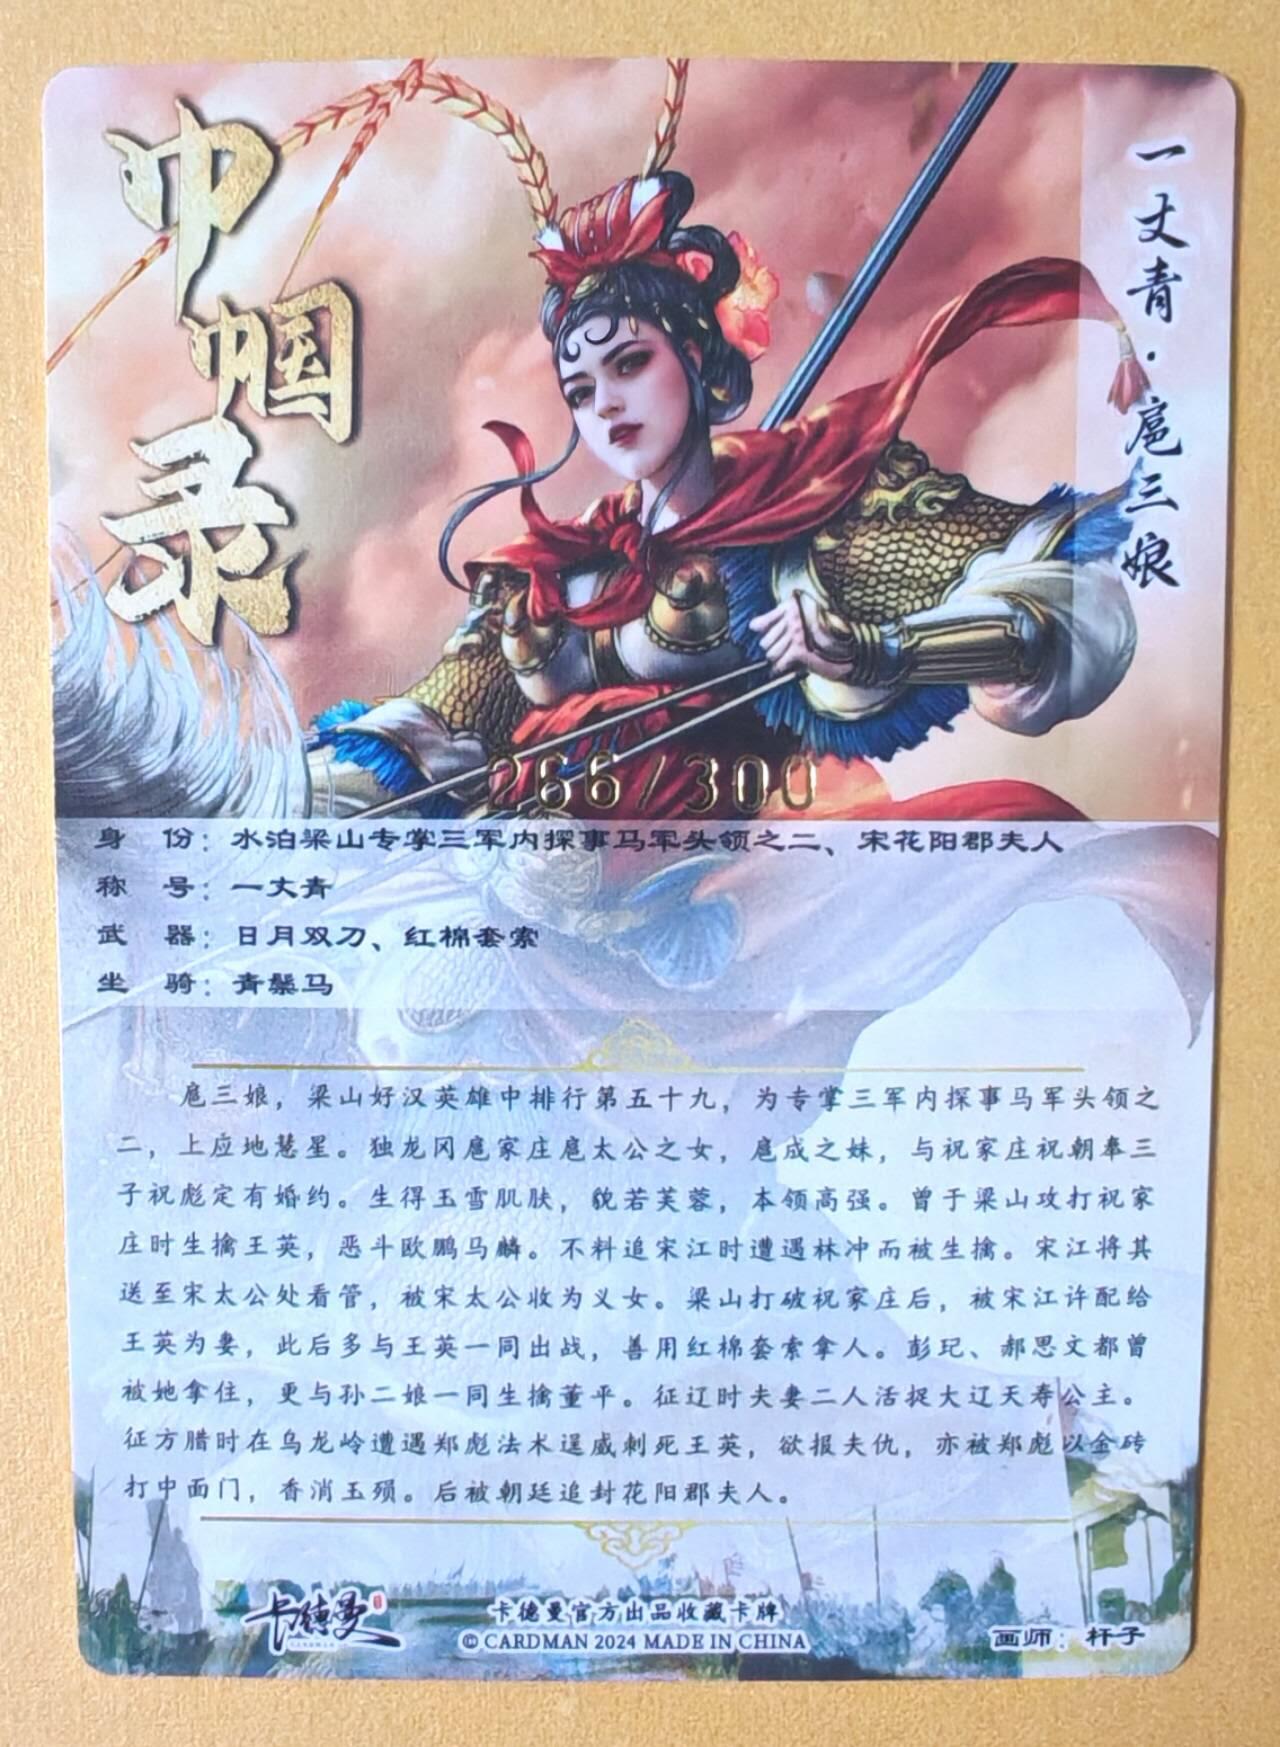 巾帼录
一丈青·扈三娘
266/300
身 份：水泊梁山专掌三军内探事马军头领之二、宋花阳郡夫人
称 号：一丈青
武 器：日月双刀、红棉套索
坐 骑：青鬃马
扈三娘，梁山好汉英雄中排行第五十九，为专掌三军内探事马军头领之
二，上应地慧星。独龙冈扈家庄扈太公之女，扈成之妹，与祝家庄祝朝奉三
子祝彪定有婚约。生得玉雪肌肤，貌若芙蓉，本领高强。曾于梁山攻打祝家
庄时生擒王英，恶斗欧鹏马麟。不料追宋江时遭遇林冲而被生擒。宋江将其
送至宋太公处看管，被宋太公收为义女。梁山打破祝家庄后，被宋江许配给
王英为妻，此后多与王英一同出战，善用红棉套索拿人。彭玘、郝思文都曾
被她拿住，更与孙二娘一同生擒董平。征辽时夫妻二人活捉大辽天寿公主。
征方腊时在乌龙岭遭遇郑彪法术逞威刺死王英，欲报夫仇，亦被郑彪以金砖
打中面门，香消玉殒。后被朝廷追封花阳郡夫人。
卡德曼
卡德曼官方出品收藏卡牌
© CARDMAN 2024 MADE IN CHINA
画师：杆子